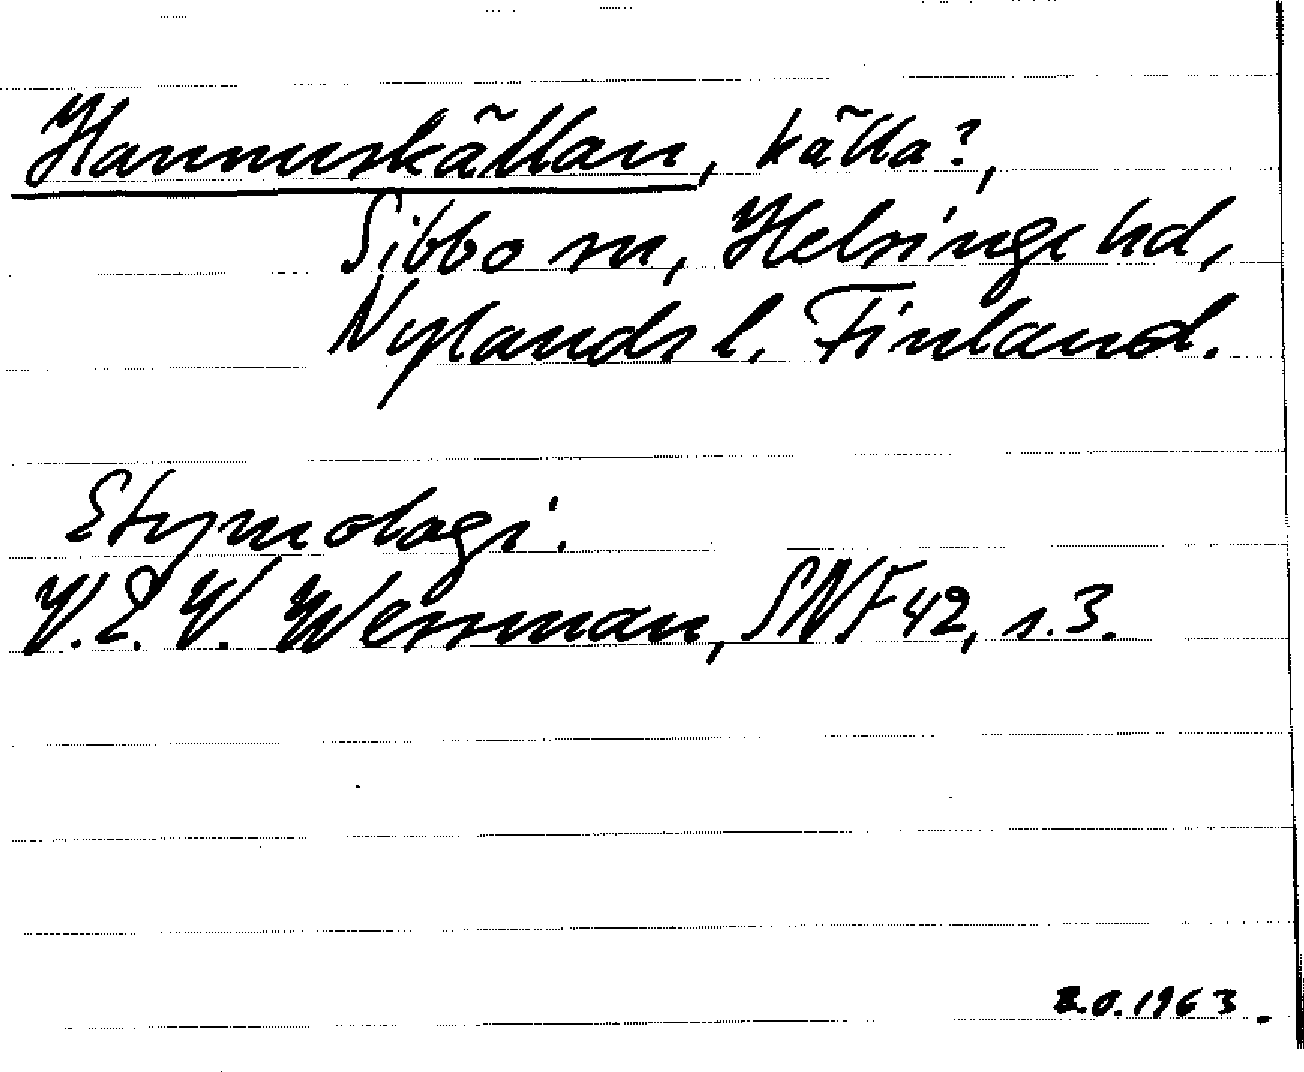 Hannuskällan, källa?,
Sibbo sn, Helsinge hd,
Nylands l. Finland.
Etymologi.
V.E.V. Wessman, SNF 42, s.3.
R.O. 1963.